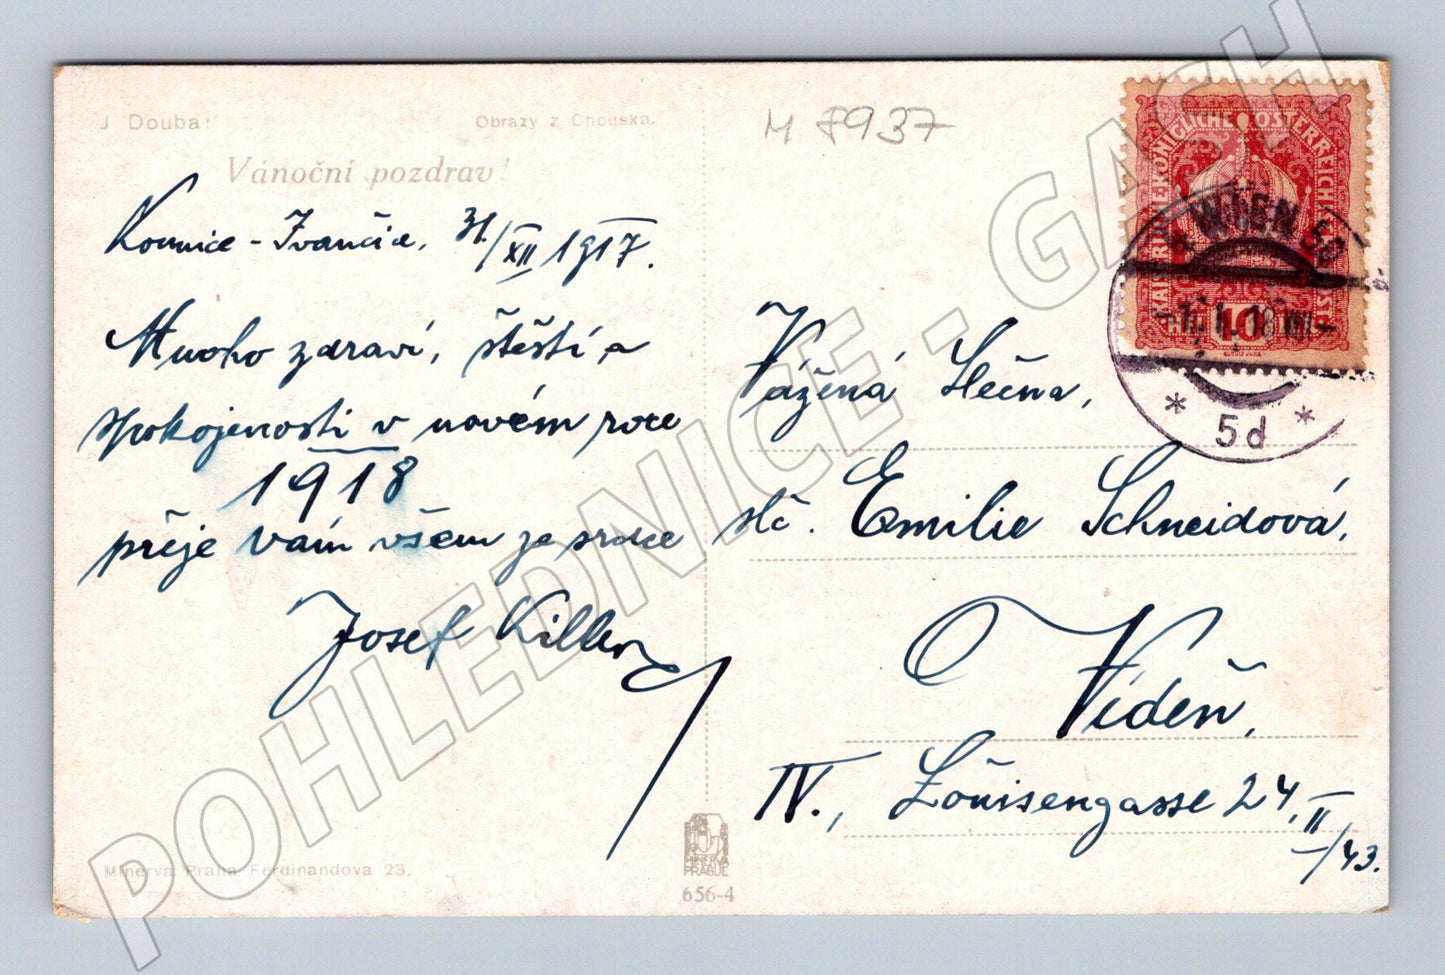 J Douba:
Obrazy z Chodska.
Vánoční pozdrav!
M 8937
Kounice - Ivančice, 31./XII 1917.
Mnoho zdraví, štěstí a
spokojenosti v novém roce
1918
přeje vám všem ze srdce
Josef Killer
Minerva, Praha Ferdinandova 23.
MINERVA
PRAGUE
656-4
KAISERLICHE-KÖNIGLICHE ÖSTERREICHISCHE POST
10
WIEN 50
-1. I. 18 VIII-
* 5d *
Vážená Slečna,
slč. Emilie Schneidová,
Vídeň,
IV., Louisengasse 24,
II/43.
POHLEDNICE - GASH